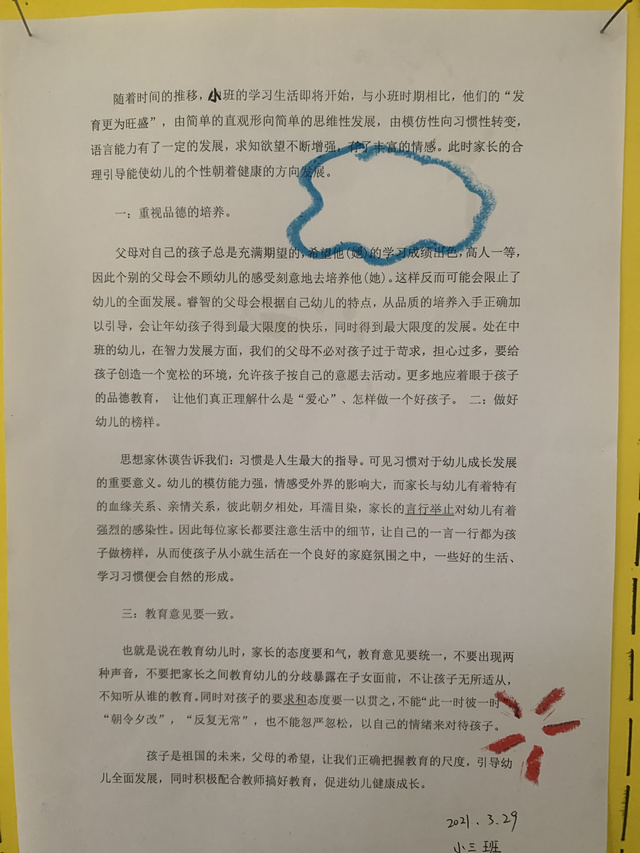 随着时间的推移，小班的学习生活即将开始，与小班时期相比，他们的“发
育更为旺盛”，由简单的直观形向简单的思维性发展，由模仿性向习惯性转变，
语言能力有了一定的发展，求知欲望不断增强，有了丰富的情感。此时家长的合
理引导能使幼儿的个性朝着健康的方向发展。
一：重视品德的培养。
父母对自己的孩子总是充满期望的，希望他(她)的学习成绩出色，高人一等，
因此个别的父母会不顾幼儿的感受刻意地去培养他(她)。这样反而可能会限止了
幼儿的全面发展。睿智的父母会根据自己幼儿的特点，从品质的培养入手正确加
以引导，会让年幼孩子得到最大限度的快乐，同时得到最大限度的发展。处在中
班的幼儿，在智力发展方面，我们的父母不必对孩子过于苛求，担心过多，要给
孩子创造一个宽松的环境，允许孩子按自己的意愿去活动。更多地应着眼于孩子
的品德教育， 让他们真正理解什么是“爱心”、怎样做一个好孩子。 二：做好
幼儿的榜样。
思想家休谟告诉我们：习惯是人生最大的指导。可见习惯对于幼儿成长发展
的重要意义。幼儿的模仿能力强，情感受外界的影响大，而家长与幼儿有着特有
的血缘关系、亲情关系，彼此朝夕相处，耳濡目染，家长的言行举止对幼儿有着
强烈的感染性。因此每位家长都要注意生活中的细节，让自己的一言一行都为孩
子做榜样，从而使孩子从小就生活在一个良好的家庭氛围之中，一些好的生活、
学习习惯便会自然的形成。
三：教育意见要一致。
也就是说在教育幼儿时，家长的态度要和气，教育意见要统一，不要出现两
种声音，不要把家长之间教育幼儿的分歧暴露在子女面前，不让孩子无所适从，
不知听从谁的教育。同时对孩子的要求和态度要一以贯之，不能“此一时彼一时
“朝令夕改”，“反复无常”，也不能忽严忽松，以自己的情绪来对待孩子。
孩子是祖国的未来，父母的希望，让我们正确把握教育的尺度，引导幼
儿全面发展，同时积极配合教师搞好教育，促进幼儿健康成长。
2021.3.29
小三班